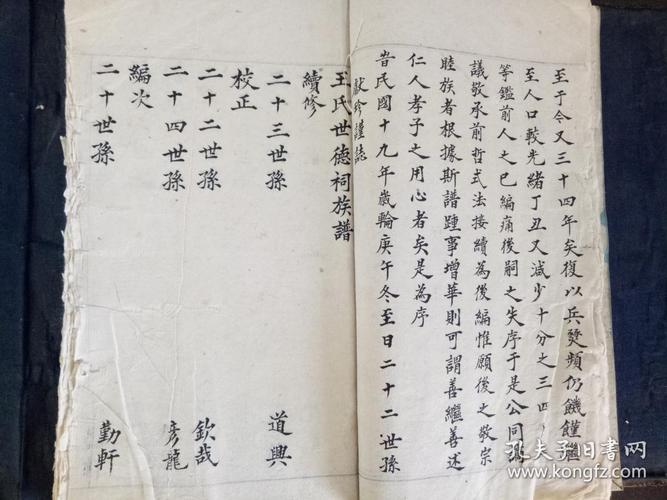 至于今又三十四年矣復以兵燹頻仍饑饉
至人口較光緒丁丑又減少十分之三四
等鑑前人之已編痛後嗣之失序于是公同
議敬承前哲式法接續為後編惟願後之敬宗
睦族者根據斯譜踵事增華則可謂善繼善述
仁人孝子之用心者矣是為序
旹民國十九年歲輪庚午冬至日二十二世孫
獻珍謹誌
王氏世德祠族譜
續修
二十三世孫 道興
校正
二十二世孫 欽哉
二十四世孫 彥龍
編次
二十世孫 勤軒
孔夫子旧书网
www.kongfz.com